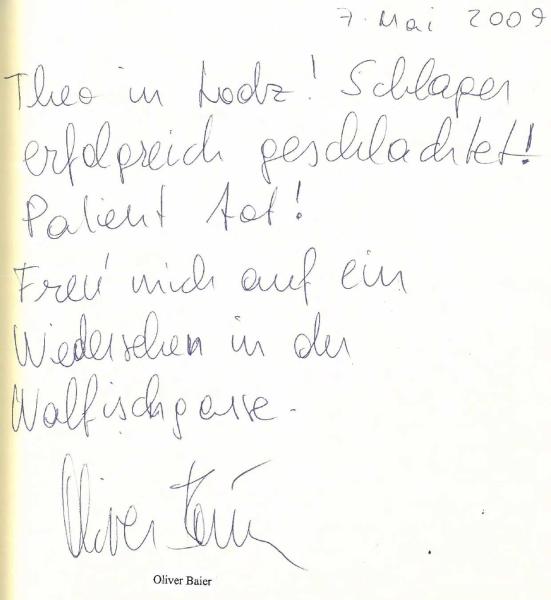 7. Mai 2009
Theo in Lodz! Schlager
erfolgreich geschlachtet!
Patient tot!
Freu' mich auf ein
Wiedersehen in der
Walfischgasse.
Oliver Baier
Oliver Baier